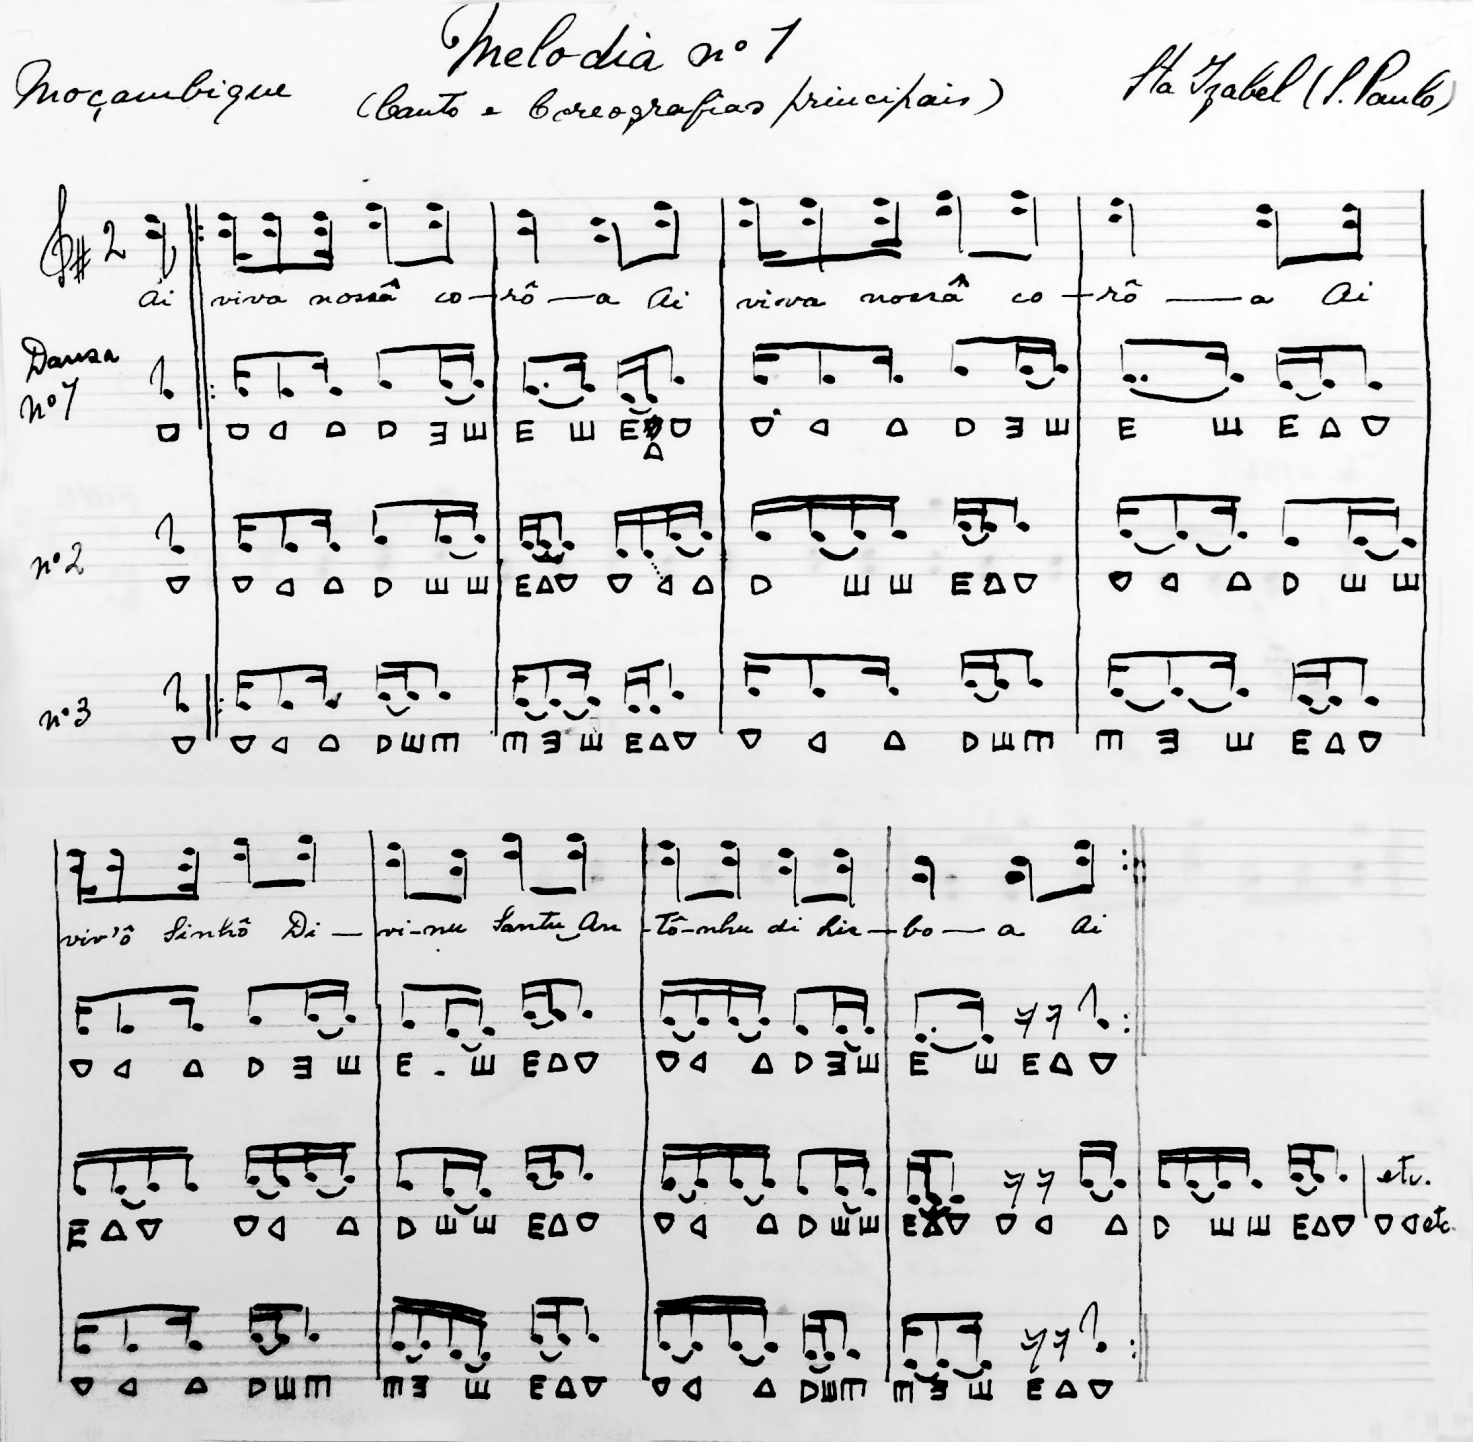 Melodia nº 1
Moçambique (Canto e Coreografias principais) Sta Izabel (S. Paulo)
2
Ai viva nossâ co-rô-a Ai viva nossâ co-rô-a Ai
Dansa nº 1
nº 2
nº 3
viv'ô Sinhô Di-vi-nu Santu An-tônhu di Lis-bo-a Ai
etc.
etc.